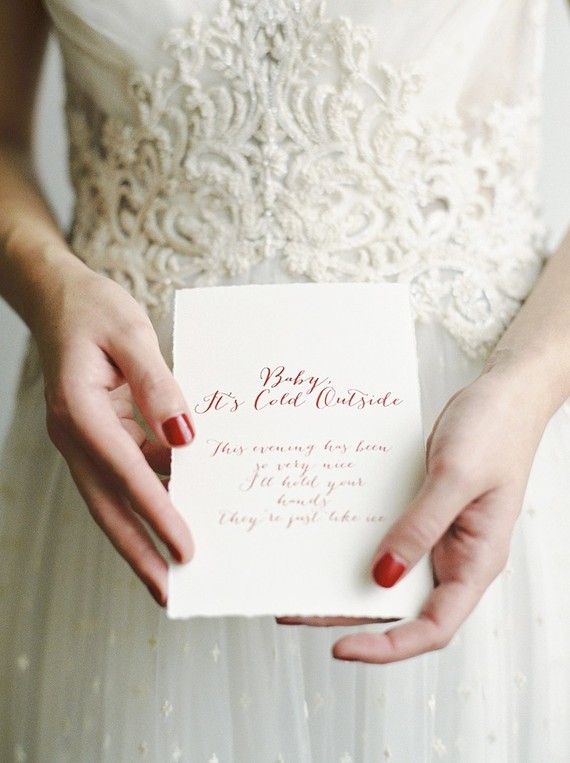 Baby,
It's Cold Outside
This evening has been
so very nice
I'll hold your
hands
they're just like ice